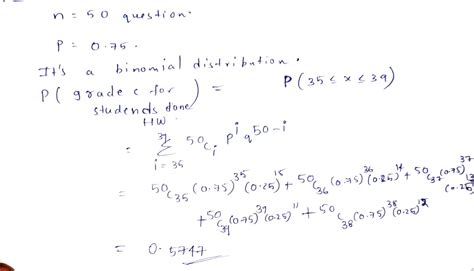 n = 50 question.
P = 0.75.
It's a binomial distribution.
P ( grade c for students done HW ) = P ( 35 ≤ x ≤ 39 )
= 39 Σ i = 35 50Ci P^i q^50-i
= 50C35 (0.75)^35 (0.25)^15 + 50C36 (0.75)^36 (0.25)^14 + 50C37 (0.75)^37 (0.25)^13
+ 50C39 (0.75)^39 (0.25)^11 + 50C38 (0.75)^38 (0.25)^12
= 0.5747